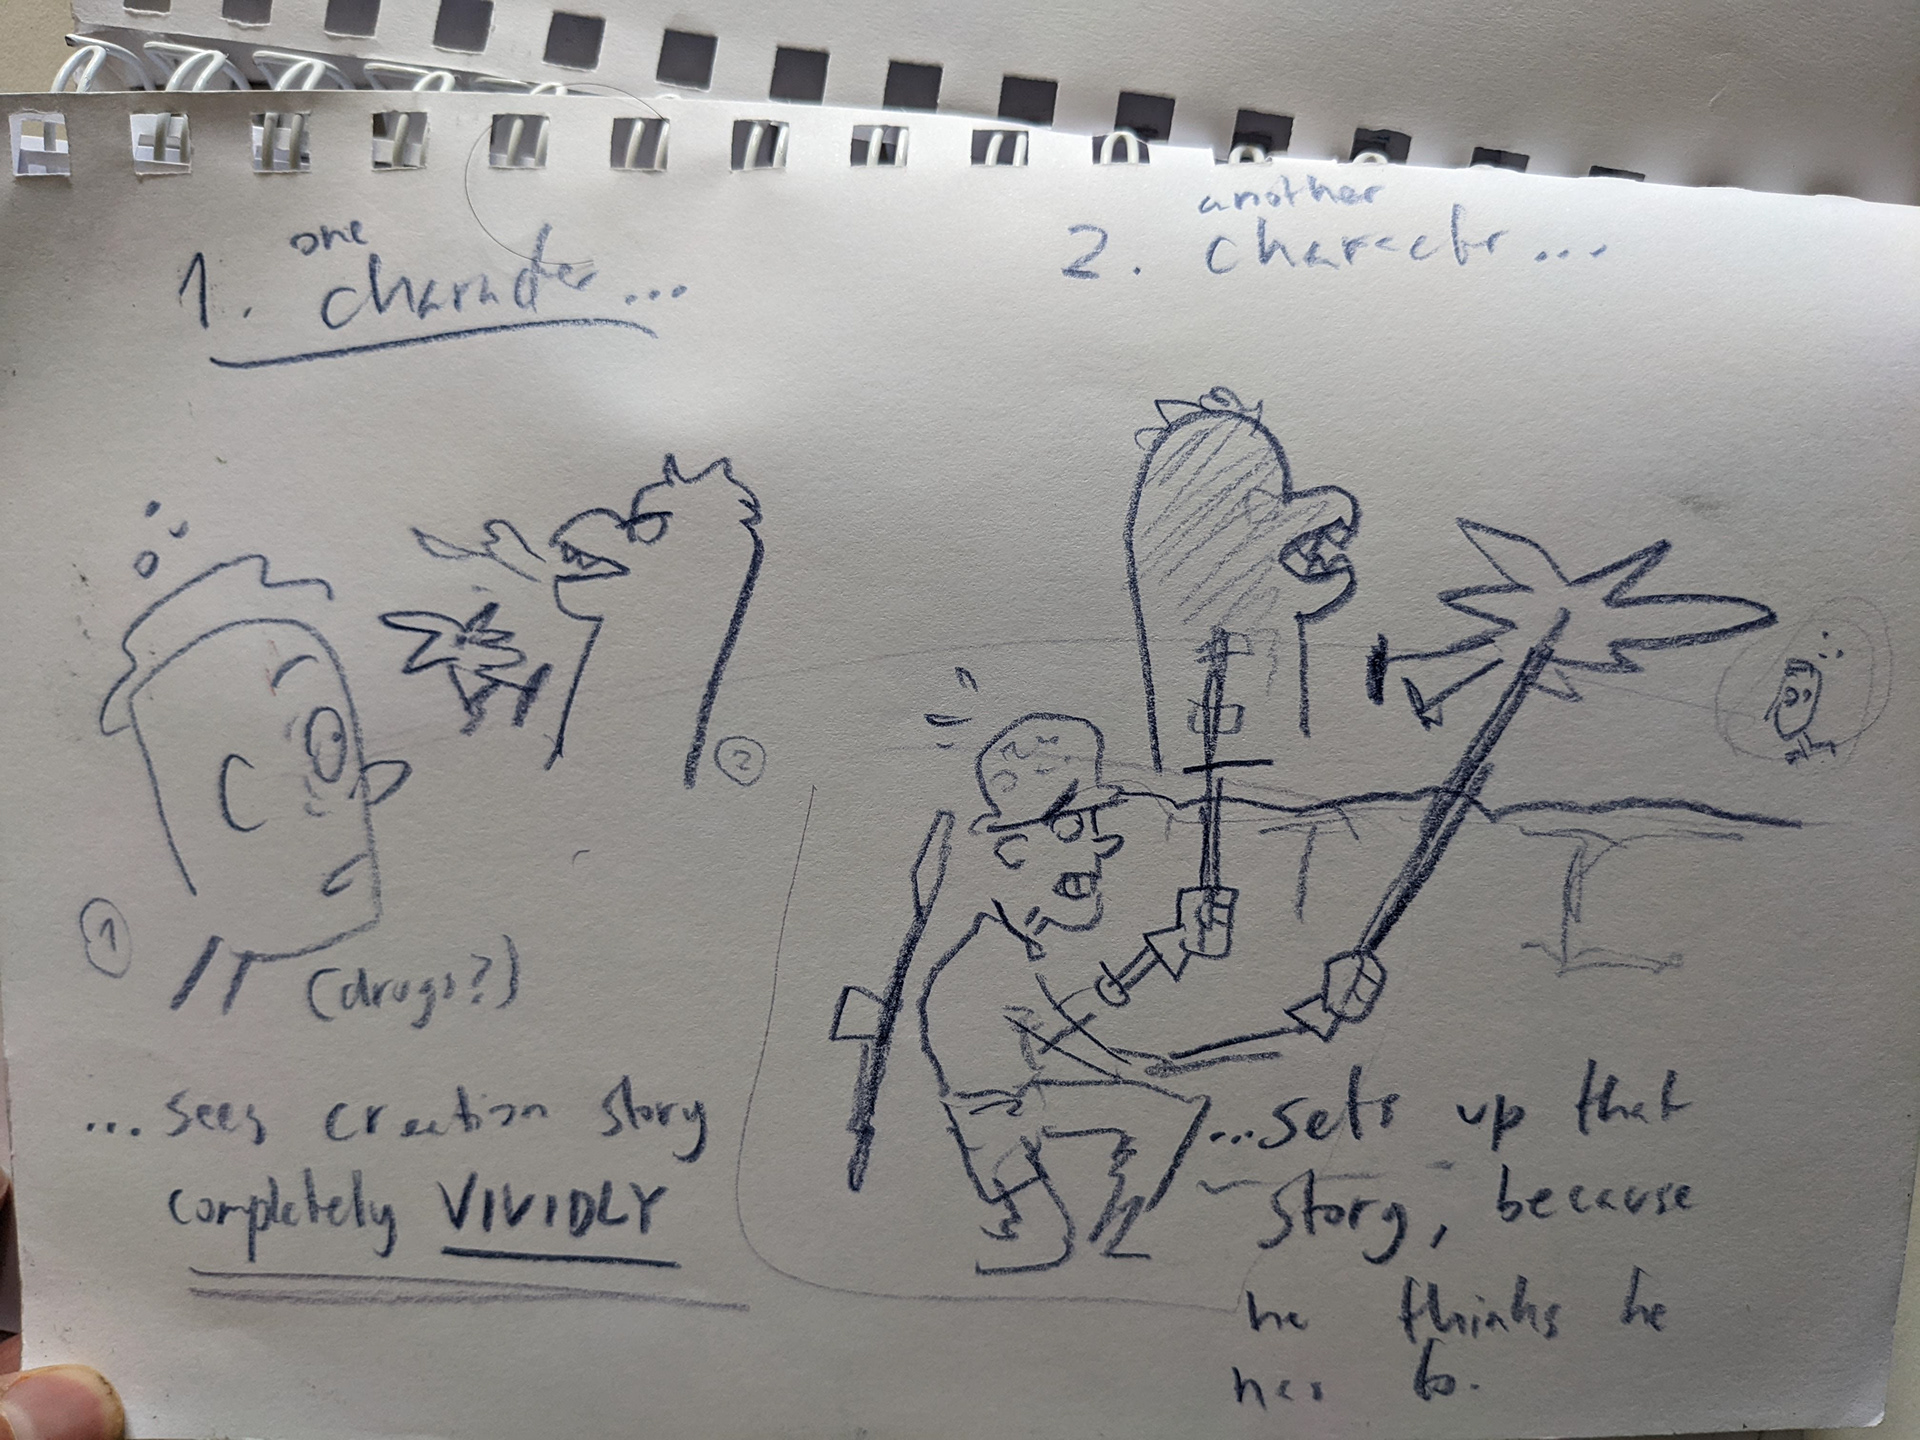 1. one character...
2. another character...
2
1
(drugs?)
... sees creation story
completely VIVIDLY
...sets up that
story, because
he thinks he
has to.